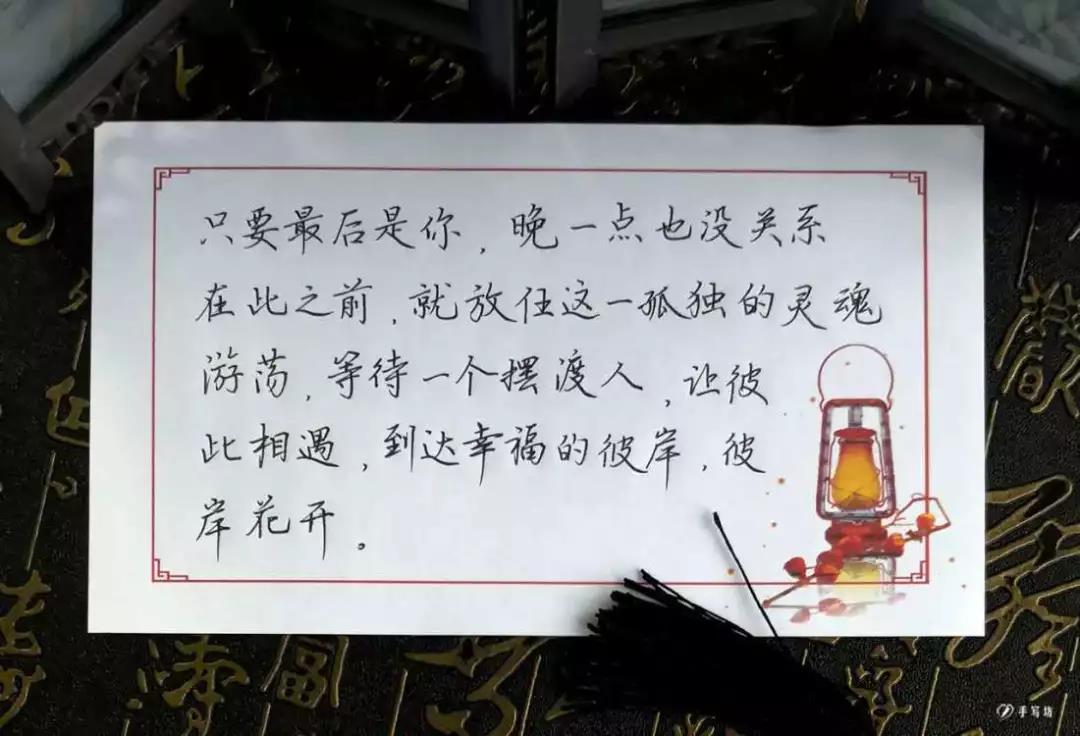 只要最后是你，晚一点也没关系
在此之前，就放任这一孤独的灵魂
游荡，等待一个摆渡人，让彼
此相遇，到达幸福的彼岸，彼
岸花开。
手写坊